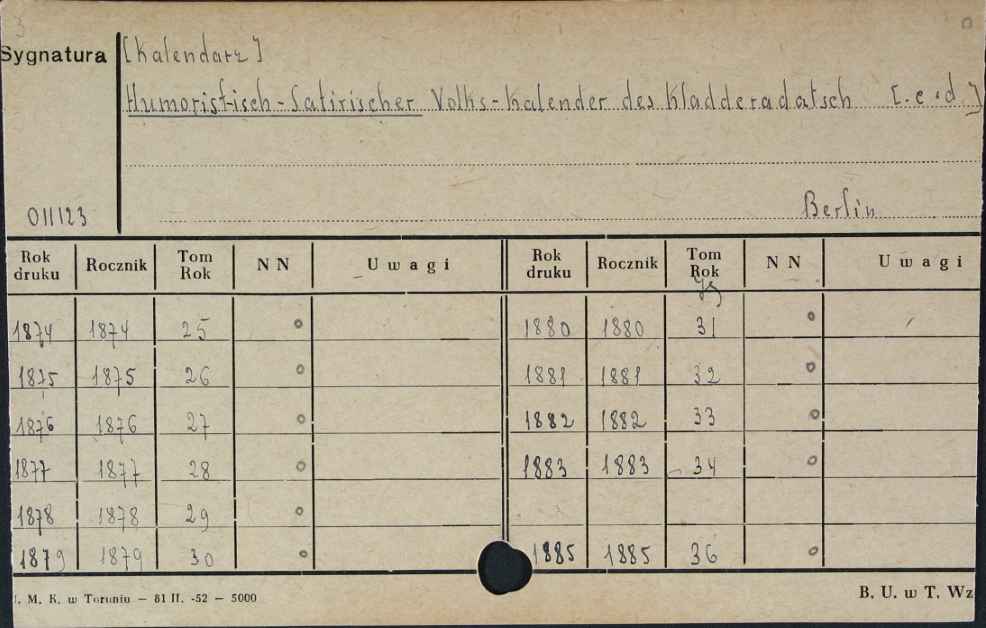 3
Sygnatura [Kalendarz]
Humoristisch-Satirischer Volks-Kalender des Kladderadatsch [.c.d.]
011123 Berlin
Rok druku Rocznik Tom Rok N N Uwagi Rok druku Rocznik Tom Rok N N Uwagi
1874 1874 25 o 1880 1880 31 o
1875 1875 26 o 1881 1881 32 o
1876 1876 27 o 1882 1882 33 o
1877 1877 28 o 1883 1883 34 o
1878 1878 29 o
1879 1879 30 o 1885 1885 36 o
. M. K. w Toruniu — 81 II. -52 — 5000 B. U. w T. Wz